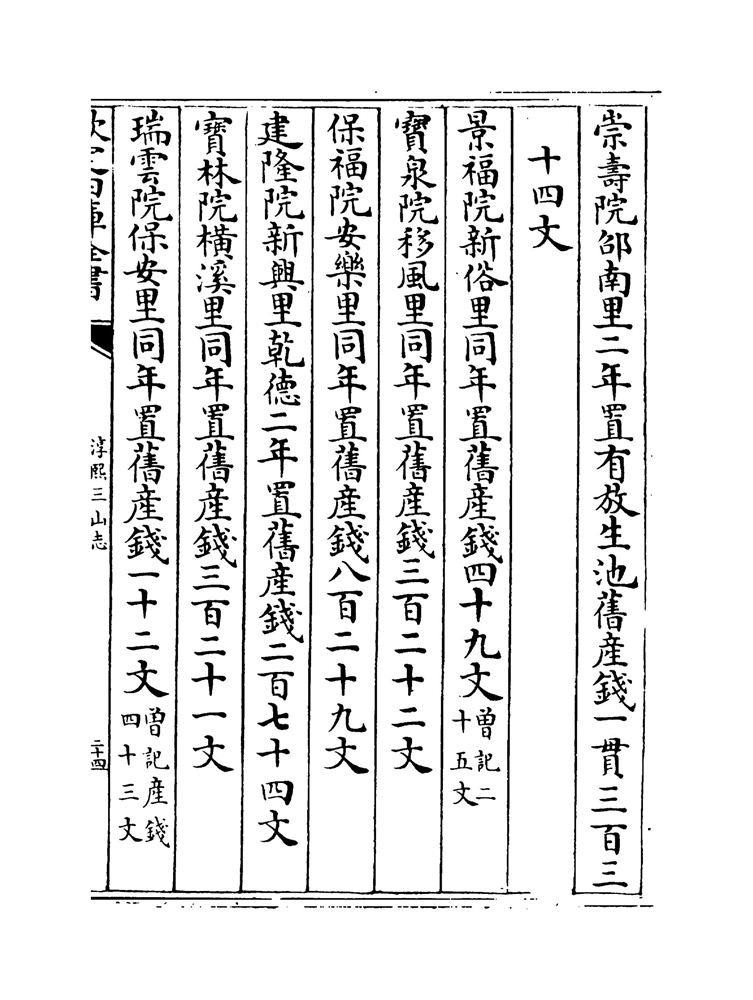 崇壽院邵南里二年置有放生池舊産錢一貫三百三
十四文
景福院新俗里同年置舊産錢四十九文曽記二
十五文
寶泉院移風里同年置舊産錢三百二十二文
保福院安樂里同年置舊産錢八百二十九文
建隆院新興里乾德二年置舊産錢二百七十四文
寶林院橫溪里同年置舊産錢三百二十一文
瑞雲院保安里同年置舊産錢一十二文曽記産錢
四十三文
欽定四庫全書
淳熙三山志
二十四